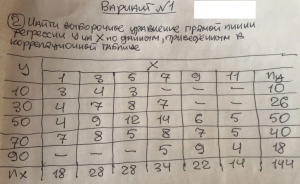 Вариант №1
② Найти выборочное уравнение прямой линии
регрессии Y на X по данным, приведённым в
корреляционной таблице
У X
1 3 5 7 9 11 ny
10 3 4 3 – – – 10
30 4 7 8 7 – – 26
50 4 9 12 14 6 5 50
70 7 8 5 8 7 5 40
90 – – – 5 9 4 18
nx 18 28 28 34 22 14 144